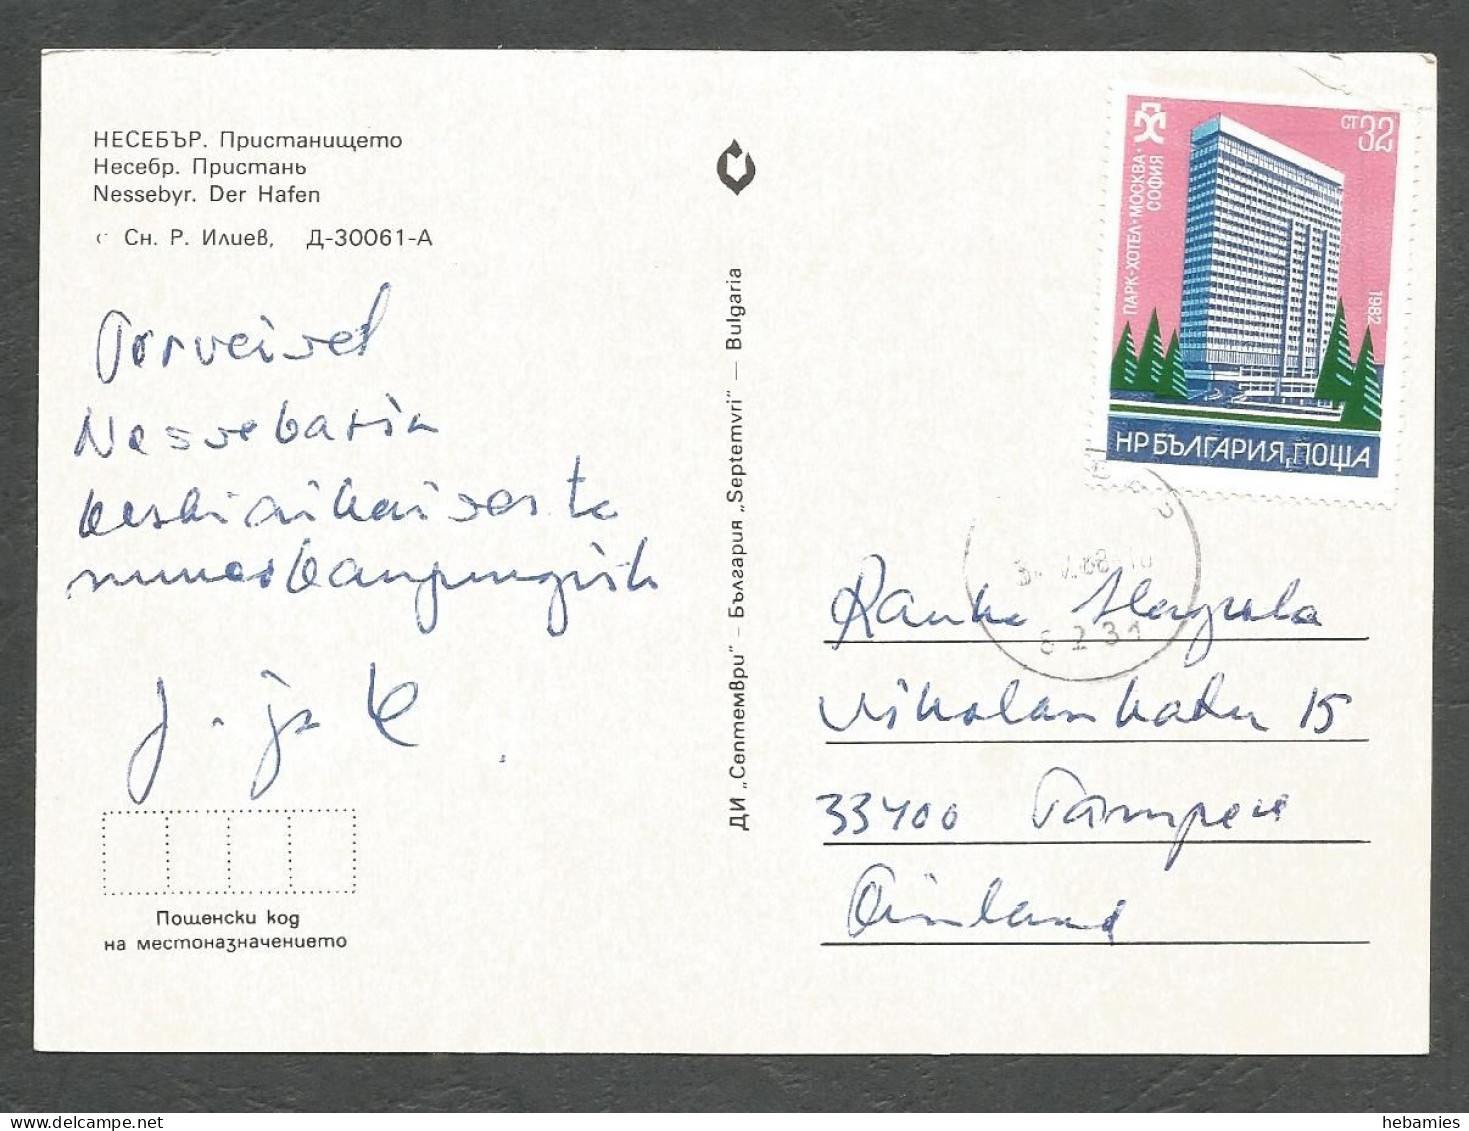 НЕСЕБЪР. Пристанището
Несебр. Пристань
Nessebyr. Der Hafen
Сн. Р. Илиев, Д-30061-А
Terveiset
Nessebarin
keskiaikaisesta
museokaupungista
J. ja K
Пощенски код
на местоназначението
ДИ „Септември" — България „Septemvri" — Bulgaria
ПАРК-ХОТЕЛ·МОСКВА·
СОФИЯ
СТ 32
1982
НР БЪЛГАРИЯ, ПОЩА
8231
Nikolankatu 15
33400 Tampere
Finland
hebamies